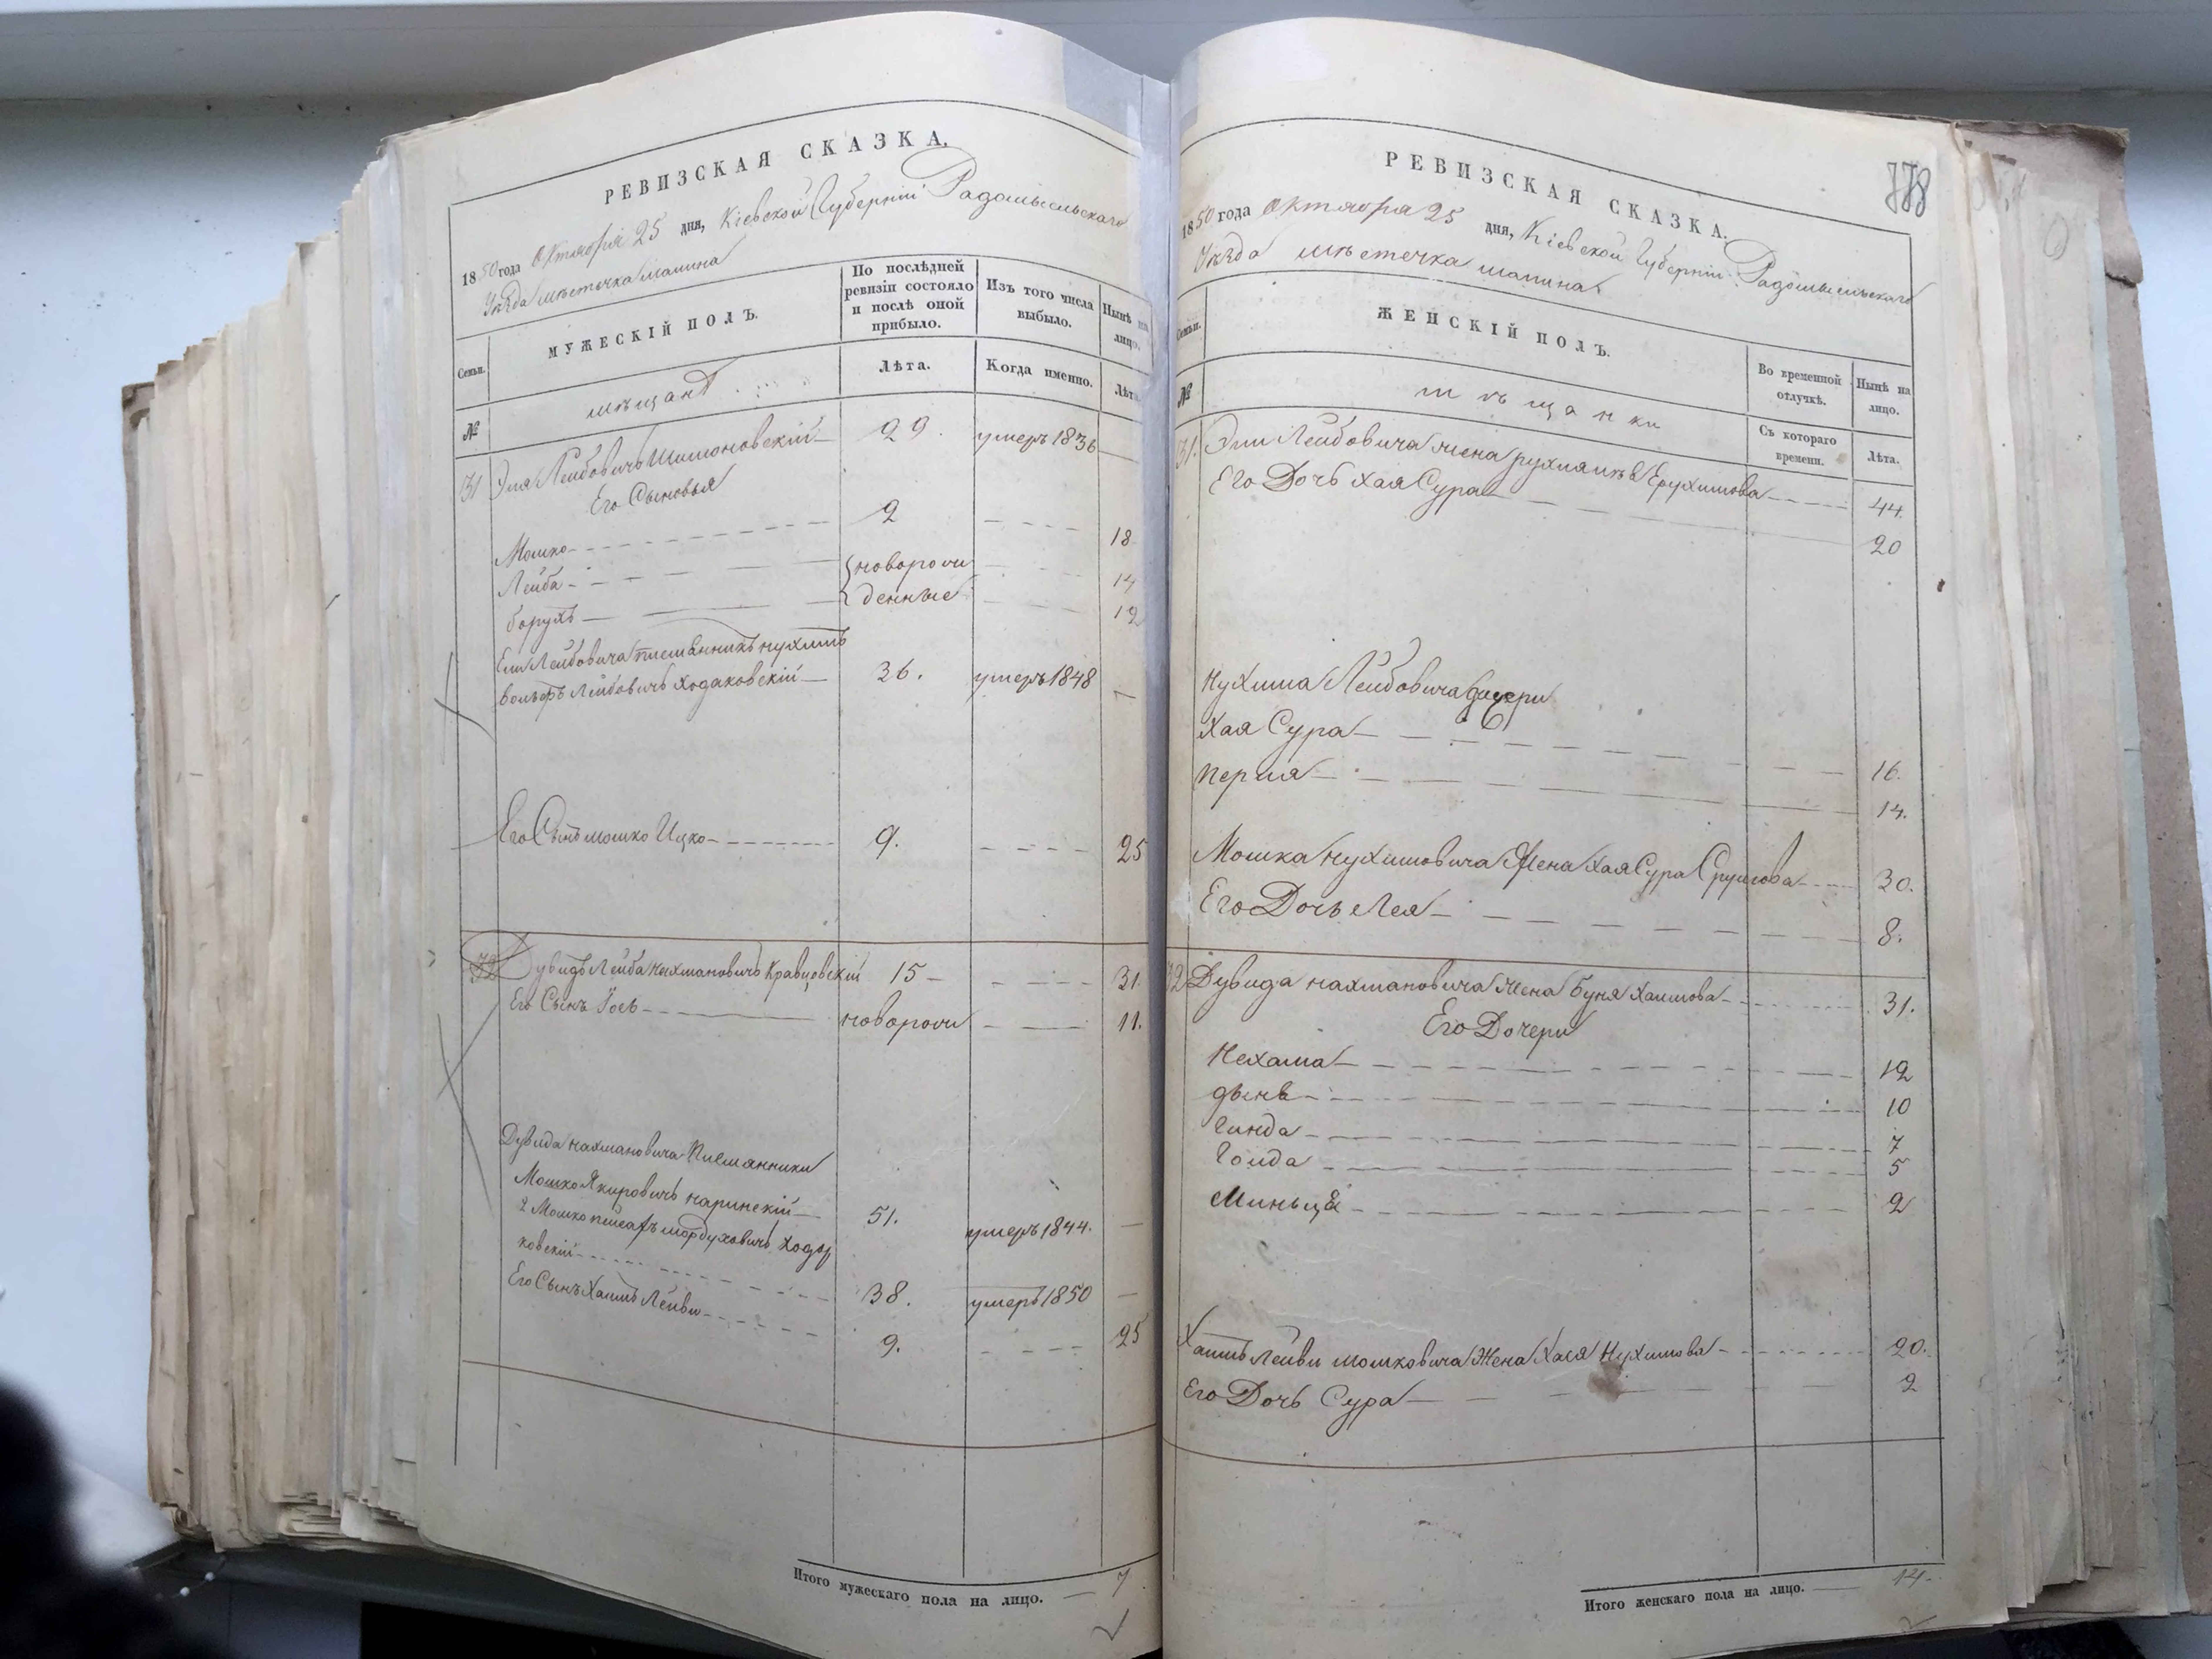 РЕВИЗСКАЯ СКАЗКА.
1850 года Октября 25 дня, Кіевской Губерніи Радомысльскаго
Уѣзда мѣстечка Малина
Семьи. МУЖЕСКІЙ ПОЛЪ. По послѣдней ревизіи состояло и послѣ оной прибыло. Изъ того числа выбыло. Нынѣ на лицо.
№ мѣщанъ Лѣта. Когда именно. Лѣта.
31 Эля Лейбовичъ Шимоновскій 29. умеръ 1836 —
Его Сыновья
Мошко 2 18
Лейба новорож 14
борухъ денные 12
Ели Лейбовича племянникъ нухимъ
вольфъ Лейбовичъ Ходаковскій 36. умеръ 1848 —
Его Сынъ мошко Ицко 9. 25
32 Дувидъ Лейба нахмановичъ Кравцовскій 15 31.
Его Сынъ Іось новорож 11.
Дувида нахмановича Племянники
Мошко Якировичъ наринскій 51. умеръ 1844. —
2 Мошко пейсахъ мордуховичъ Ходор
ковскій 38. умеръ 1850 —
Его Сынъ Хаимъ Лейви 9. 25
Итого мужескаго пола на лицо. — 7.
РЕВИЗСКАЯ СКАЗКА.
1850 года Октября 25 дня, Кіевской Губерніи Радомысльскаго
Уѣзда мѣстечка малина
Семьи. ЖЕНСКІЙ ПОЛЪ. Во временной отлучкѣ. Нынѣ на лицо.
№ мѣщанки Съ котораго времени. Лѣта.
31. Эли Лейбовича жена Ерухимова 44.
Его Дочь Хая Сура 20
Нухима Лейбовича дочери
Хая Сура 16.
Перля 14.
Мошка Нухимовича Жена Хая Сура Срулова 30.
Его Дочь Лея 8.
32 Дувида нахмановича Жена Буня Хаимова 31.
Его Дочери
Нехама 12
10
Гинда 7
Голда 5
Миньця 2
Хаимъ Лейви мошковича Жена Хася Нухимова 20.
Его Дочь Сура 2
Итого женскаго пола на лицо. — 14.